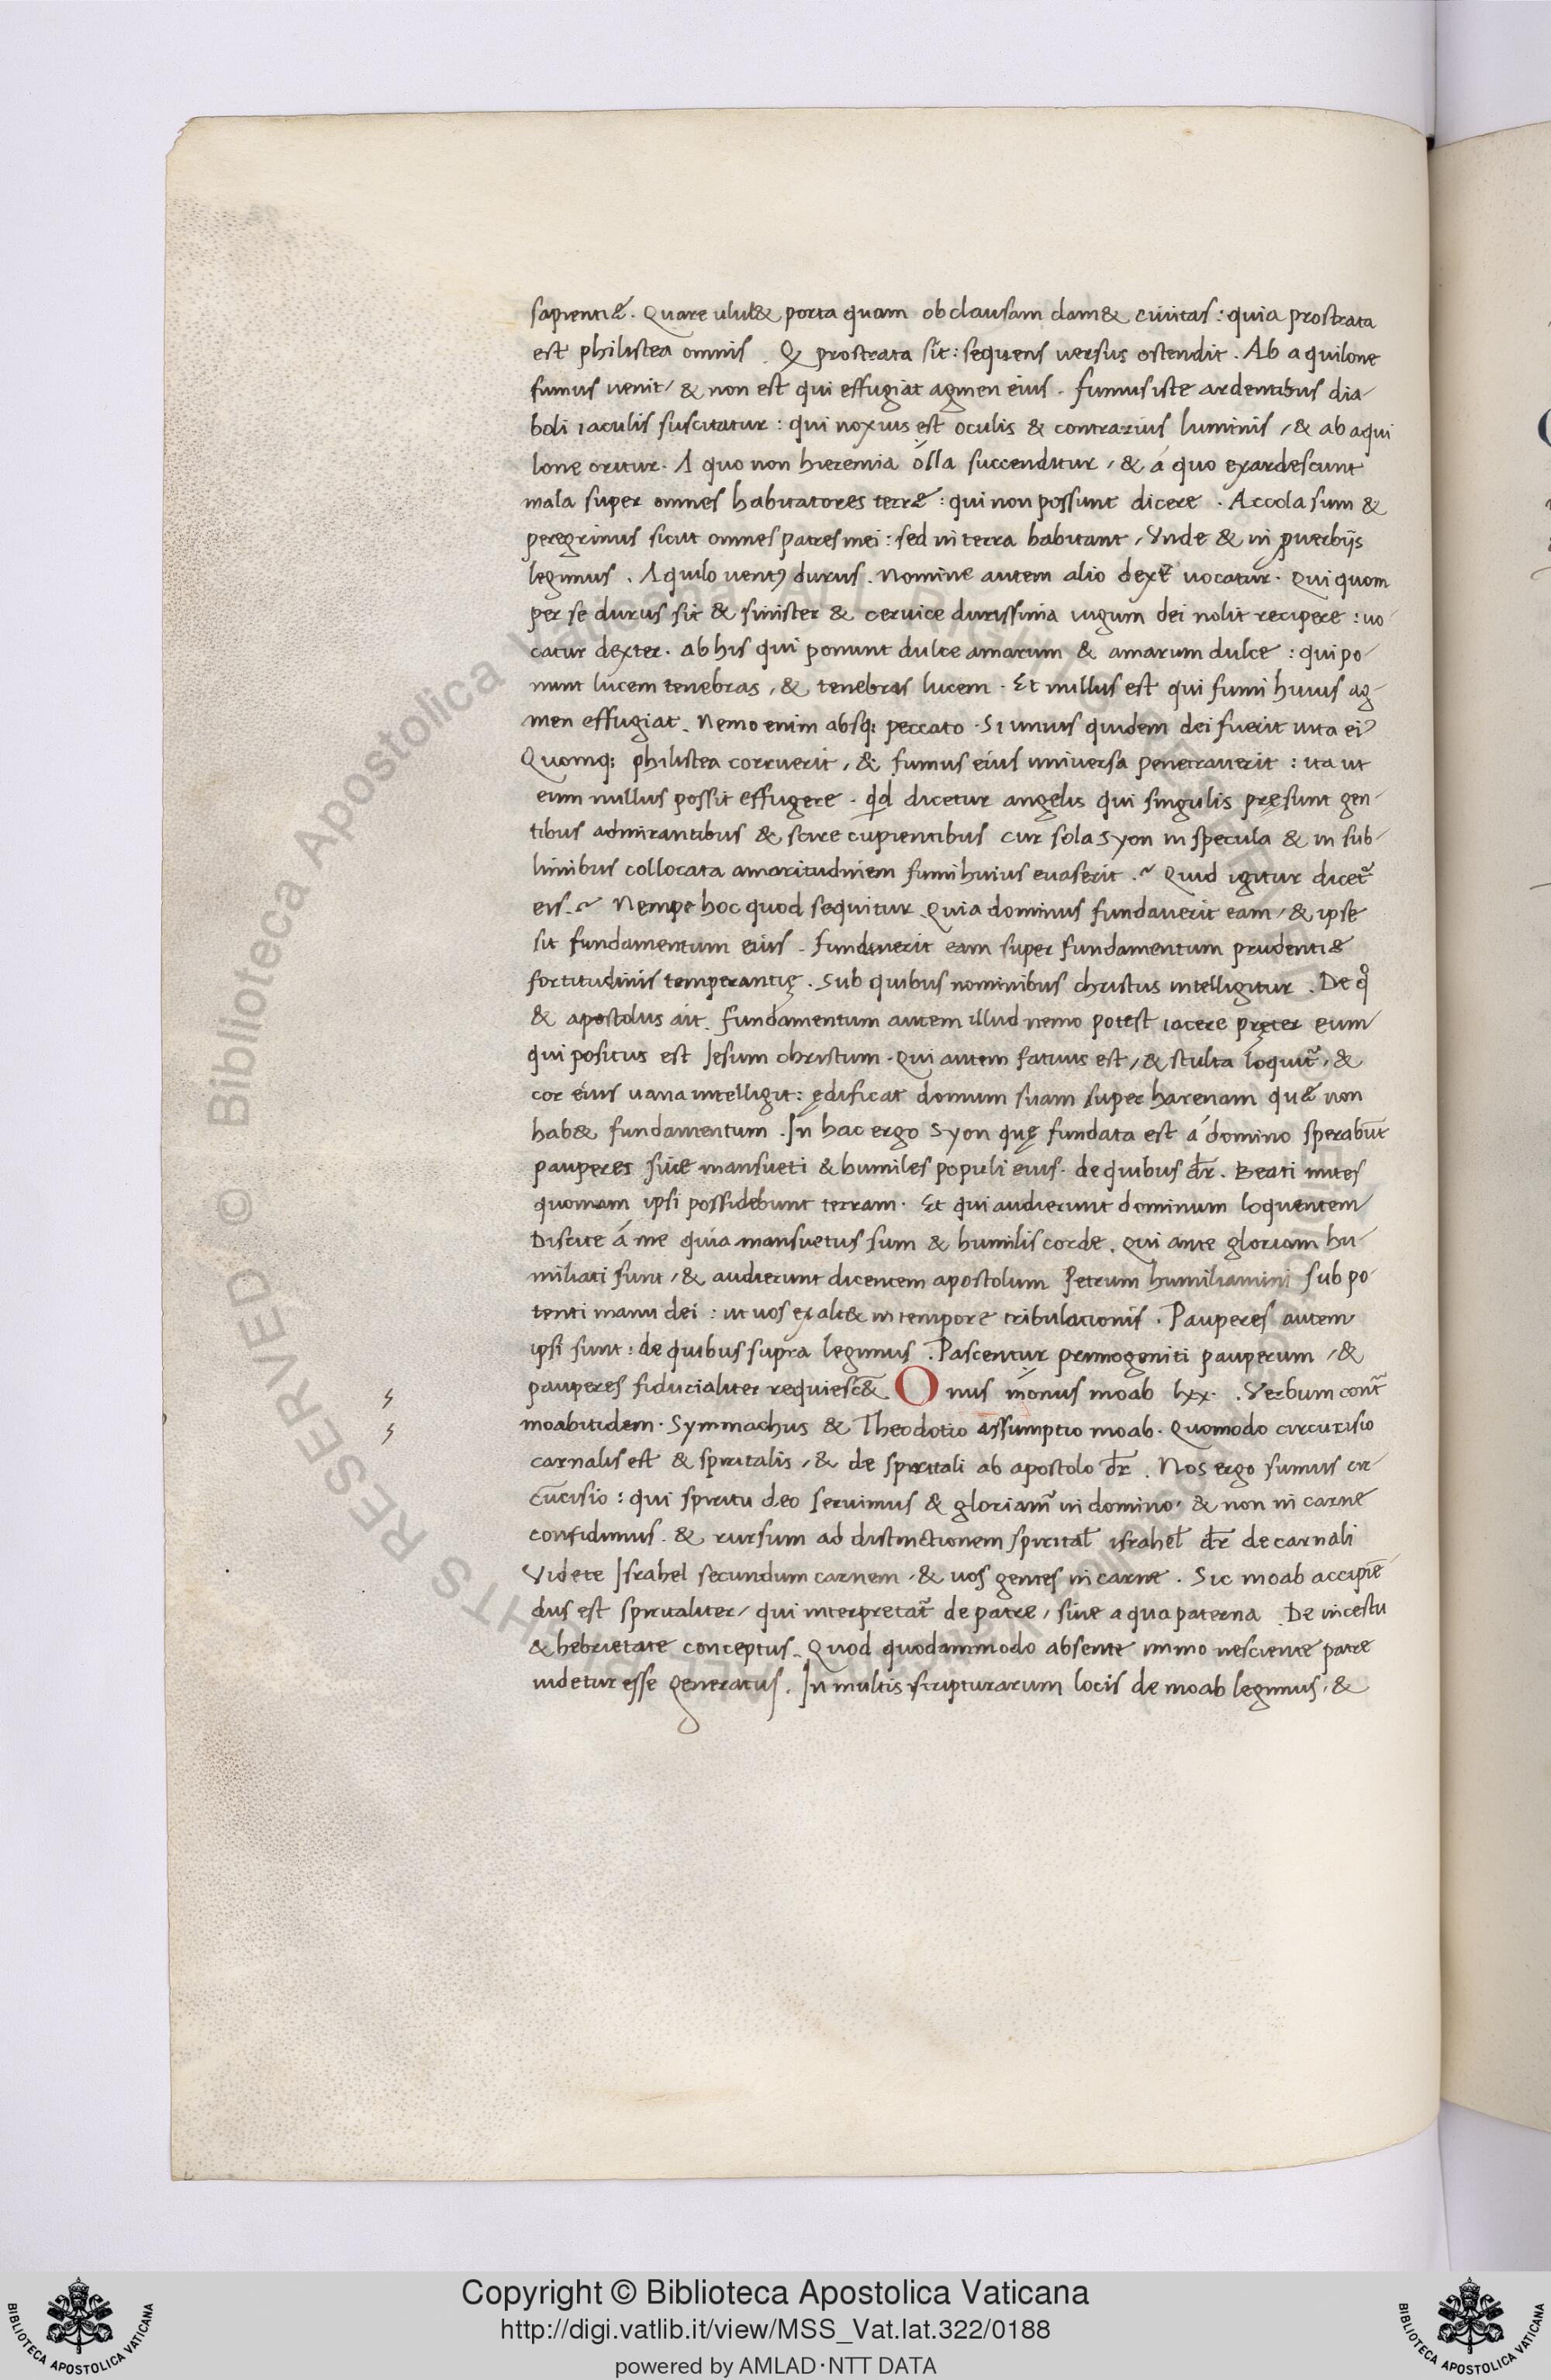 sapientiæ. Quare ulul& porta quam ob clausam clam& ciuitas: quia prostrata
est philistea omnis. Q prostrata sit: sequens uersus ostendit. Ab aquilone
fumus uenit, & non est qui effugiat agmen eius. fumus iste ardentibus dia-
boli iaculis suscitatur: qui noxius est oculis & contrarius luminis, & ab aqui
lone oritur. A quo non hieremia olla succenditur, & á quo exardescunt
mala super omnes habitatores terræ: qui non possunt dicere. Accola sum &
peregrinus sicut omnes patres mei: sed in terra habitant, Vnde & in ꝓuerbijs
legimus. Aquilo uentꝰ durus. nomine autem alio dexṫ uocatur. Qui quom
per se durus sit & sinister & ceruice durissima iugum dei nolit recipere: uo-
catur dexter. ab his qui ponunt dulce amarum & amarum dulce: qui po-
nunt lucem tenebras, & tenebras lucem. Et nullus est qui fumi huius ag-
men effugiat. Nemo enim absq; peccato. Si unius quidem diei fuerit uita eiꝰ
Quomq; philistea corruerit, & fumus eius uniuersa penetrauerit: ita ut
eum nullus possit effugere. qd dicetur angelis qui singulis pręsunt gen-
tibus admirantibus & scire cupientibus cur sola Syon in specula & in sub-
limibus collocata amaritudinem fumi huius euaserit. Quid igitur dicet᷑
eis. Nempe hoc quod sequitur. Quia dominus fundauerit eam, & ipse
sit fundamentum eius. fundauerit eam super fundamentum prudentiæ
fortitudinis temperantię. Sub quibus nominibus christus intelligitur. De qͦ
& apostolus ait. fundamentum autem illud nemo potest iacere pręter eum
qui positus est Iesum christum. Qui autem fatuus est, & stulta loquit᷑, &
cor eius uana intelligit: ędificat domum suam super harenam quæ non
hab& fundamentum. In hac ergo Syon quę fundata est á domino sperabūt
pauperes siue mansueti & humiles populi eius. de quibus dr̄. Beati mites
quoniam ipsi possidebunt terram. Et qui audierunt dominum loquentem
Discite á me quia mansuetus sum & humilis corde. Qui ante gloriam hu-
miliati sunt, & audierunt dicentem apostolum Petrum humiliamini sub po-
tenti manu dei: ut uos exalt& in tempore tribulationis. Pauperes autem
ipsi sunt: de quibus supra legimus. Pascentur primogeniti pauperum, &
pauperes fiducialiter requiesc&. Onus moab lxx. Verbum cont᷑
moabitidem. Symmachus & Theodotio assumptio moab. Quomodo circucisio
carnalis est & spiritalis, & de spiritali ab apostolo dr̄. Nos ergo sumus cir-
cūcisio: qui spiritu deo seruimus & gloriam᷑ in domino, & non in carne
confidimus. & rursum ad distinctionem spirital̄ israhel̄ dr̄ de carnali
Videte Israhel secundum carnem, & uos gentes in carne. Sic moab accipiē
dus est spiritaliter, qui interpretat᷑ de patre, siue aqua paterna. De incestu
& hebrietate conceptus. Quod quodammodo absente immo nesciente patre
uidetur esse generatus. In multis scripturarum locis de moab legimus, &
Copyright © Biblioteca Apostolica Vaticana
http://digi.vatlib.it/view/MSS_Vat.lat.322/0188
powered by AMLAD·NTT DATA